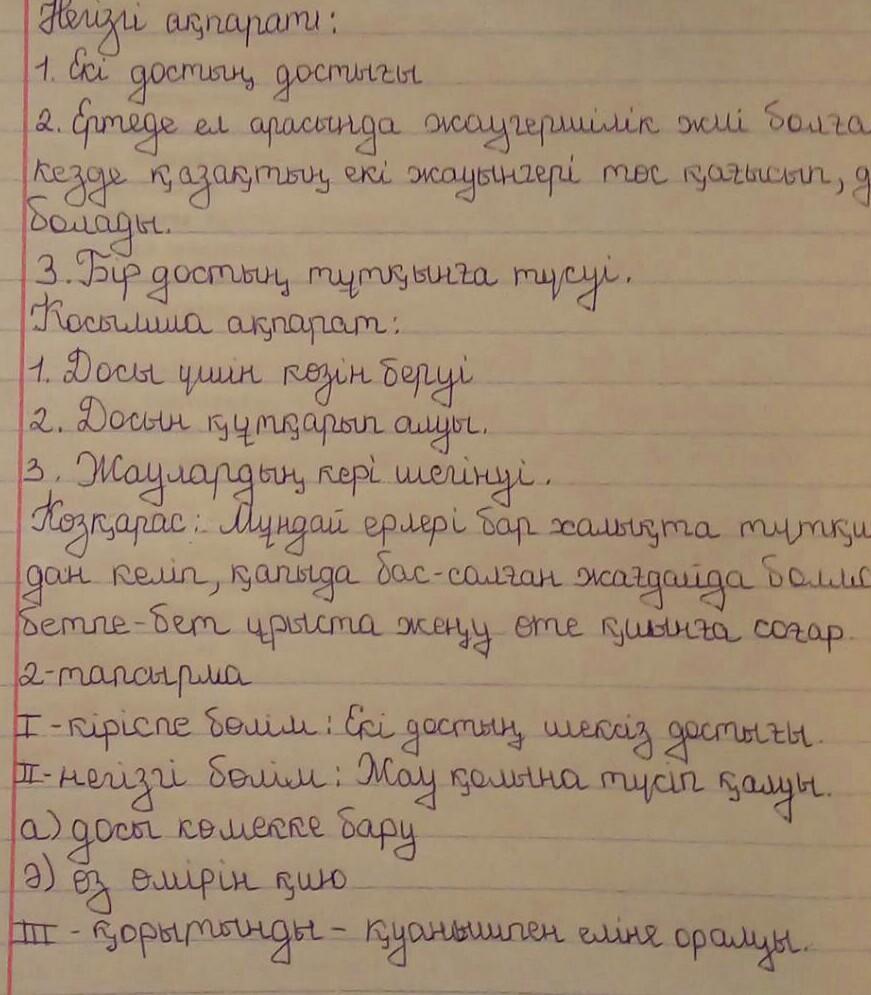 Негізгі ақпарат:
1. Екі достың достығы
2. Ертеде ел арасында жаугершілік жиі болға
кезде қазақтың екі жауынгері төс қағысып, д
болады.
3. Бір достың тұтқынға түсуі.
Қосымша ақпарат:
1. Досы үшін көзін беруі
2. Досын құтқарып алуы.
3. Жаулардың кері шегінуі.
Көзқарас: Мұндай ерлері бар халықта тұтқи
дан келіп, қапыда бас-салған жағдайда болмс
бетпе-бет ұрыста жеңу өте қиынға соғар.
2-тапсырма
I -кіріспе бөлім: Екі достың шексіз достығы.
II-негізгі бөлім: Жау қолына түсіп қалуы.
а) досы көмекке бару
ә) өз өмірін қию
III - қорытынды – қуанышпен еліне оралуы.